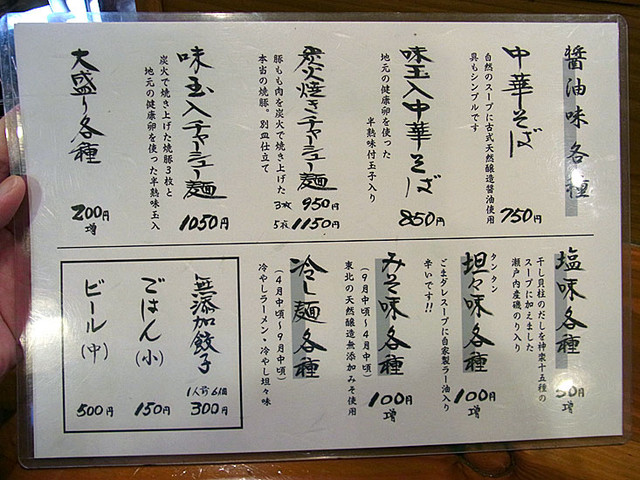 醤油味各種
中華そば
自然のスープに古式天然醸造醤油使用
具もシンプルです
750円
味玉入中華そば
地元の健康卵を使った
半熟味付玉子入り
850円
炭火焼きチャーシュー麺
豚もも肉を炭火で焼き上げた
本当の焼豚。別皿仕立て
3枚 950円
5枚 1150円
味玉入チャーシュー麺
炭火で焼き上げた焼豚3枚と
地元の健康卵を使った半熟味玉入
1050円
大盛り各種
200円増
塩味各種
干し貝柱のだしを神楽十五種の
スープに加えました
瀬戸内産磯のり入り
50円増
タンタン
坦々味各種
ごまダレスープに自家製ラー油入り
辛いです!!
100円増
みそ味各種
(9月中頃〜4月中頃)
東北の天然醸造無添加みそ使用
100円増
冷し麺各種
(4月中頃〜9月中頃)
冷やしラーメン・冷やし坦々味
無添加餃子
1人前6個
300円
ごはん(小)
150円
ビール(中)
500円